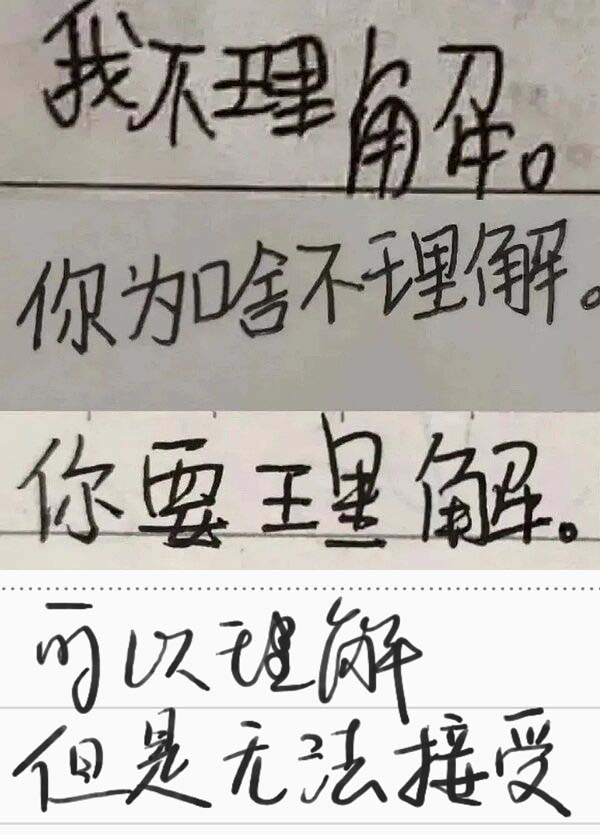 我不理解。
你为啥不理解。
你要理解。
可以理解
但是无法接受